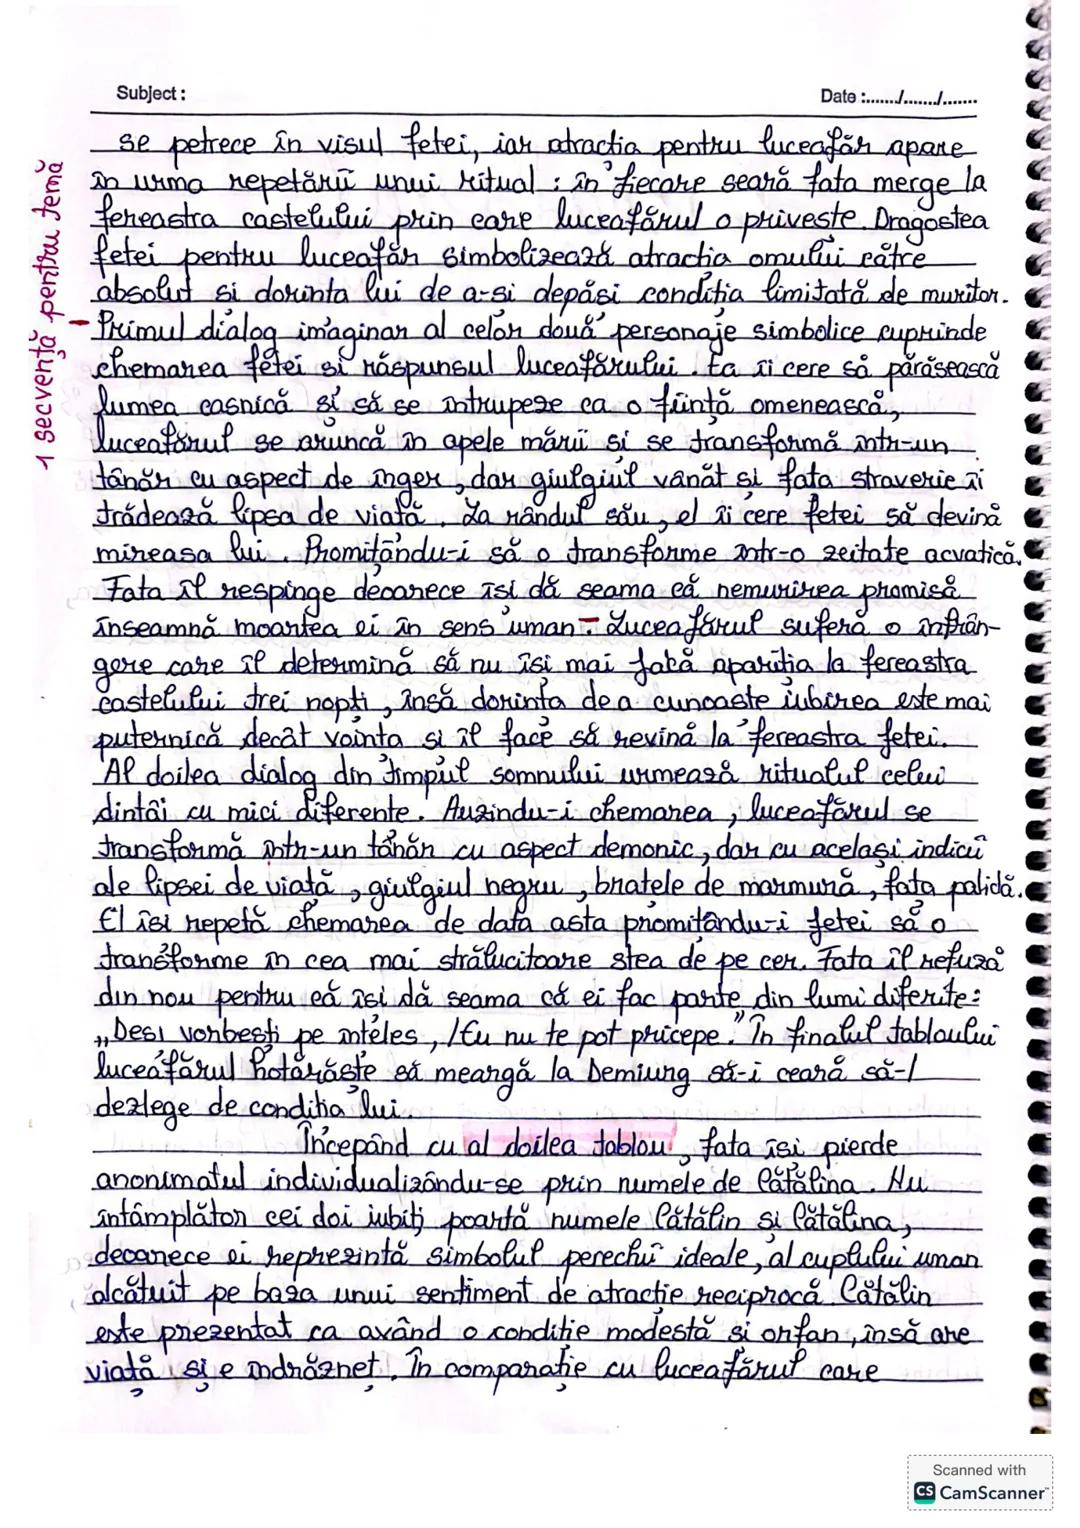 Subject :
Date :......./......./.......
1 secvență pentru temă
se petrece în visul fetei, iar atractia pentru luceafăr apare
în urma repetării unui ritual : în fiecare seară fata merge la
fereastra castelului prin care luceafărul o priveste. Dragostea
fetei pentru luceafăr simbolizează atractia omului către
absolut si dorinta lui de a-si depăsi condiția limitată de muritor.
- Primul dialog imaginar al celor două personaje simbolice cuprinde
chemarea fetei si răspunsul luceafărului. Ea îi cere să părăsească
lumea casnică și să se întrupeze ca o ființă omenească,
luceafărul se aruncă în apele mării si se transformă într-un
tânăr cu aspect de înger, dar giulgiul vânăt si fata straverie îi
trădează lipsa de viață. La rândul său, el îi cere fetei să devină
mireasa lui. Promițându-i să o transforme într-o zeitate acvatică.
Fata îl respinge deoarece îsi dă seama că nemurirea promisă
înseamnă moartea ei în sens uman - Luceafărul suferă o înfrân-
gere care îl determină să nu îsi mai facă apariția la fereastra
castelului trei nopți, însă dorința de a cunoaste iubirea este mai
puternică decât voința si îl face să revină la fereastra fetei.
Al doilea dialog din timpul somnului urmează ritualul celui
dintâi cu mici diferente. Auzindu-i chemarea, luceafărul se
transformă într-un tânăr cu aspect demonic, dar cu același indicii
ale lipsei de viață, giulgiul negru, bratele de marmură, fața palidă.
El îsi repetă chemarea de data asta promițându-i fetei să o
transforme în cea mai strălucitoare stea de pe cer. Fata îl refuză
din nou pentru că îsi dă seama că ei fac parte din lumi diferite:
„Desi vorbești pe înteles, /Eu nu te pot pricepe." În finalul tabloului
luceafărul hotărăste să meargă la Demiurg să-i ceară să-l
dezlege de condiția lui.
Începând cu al doilea tablou, fata îsi pierde
anonimatul individualizându-se prin numele de Cătălina. Nu
întâmplător cei doi iubiți poartă numele Cătălin si Cătălina,
deoarece ei reprezintă simbolul perechii ideale, al cuplului uman
alcătuit pe baza unui sentiment de atracție reciprocă. Cătălin
este prezentat ca având o condiție modestă si orfan, însă are
viață și e îndrăzneț. În comparație cu luceafărul care
Scanned with
CS CamScanner